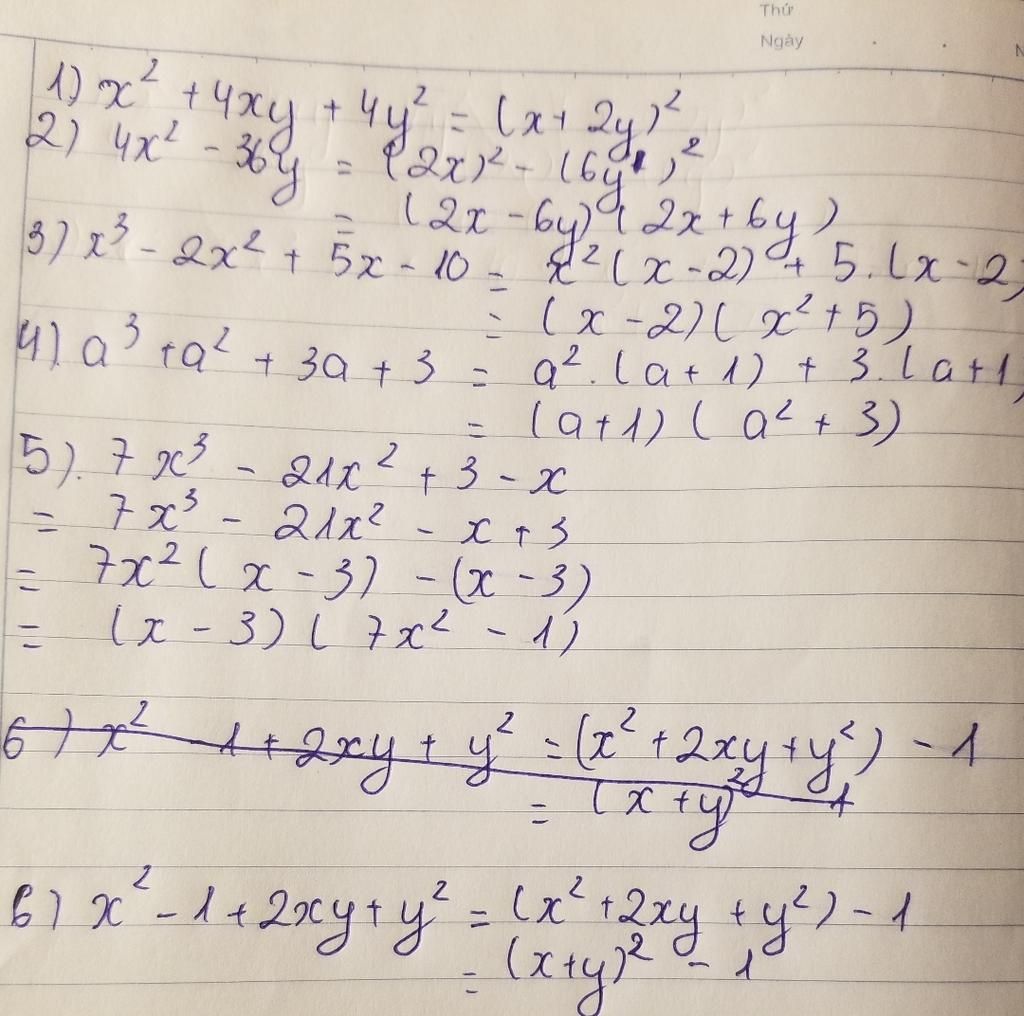 Thứ
Ngày
1) x² + 4xy + 4y² = (x + 2y)²
2) 4x² - 36y = (2x)² - (6y)²
= (2x - 6y) (2x + 6y)
3) x³ - 2x² + 5x - 10 = x² (x - 2) + 5. (x - 2)
= (x - 2) (x² + 5)
4) a³ + a² + 3a + 3 = a². (a + 1) + 3. (a + 1)
= (a + 1) (a² + 3)
5). 7x³ - 21x² + 3 - x
= 7x³ - 21x² - x + 3
= 7x² (x - 3) - (x - 3)
= (x - 3) (7x² - 1)
6) x² - 1 + 2xy + y² = (x² + 2xy + y²) - 1
= (x + y)² - 1
6) x² - 1 + 2xy + y² = (x² + 2xy + y²) - 1
= (x + y)² - 1